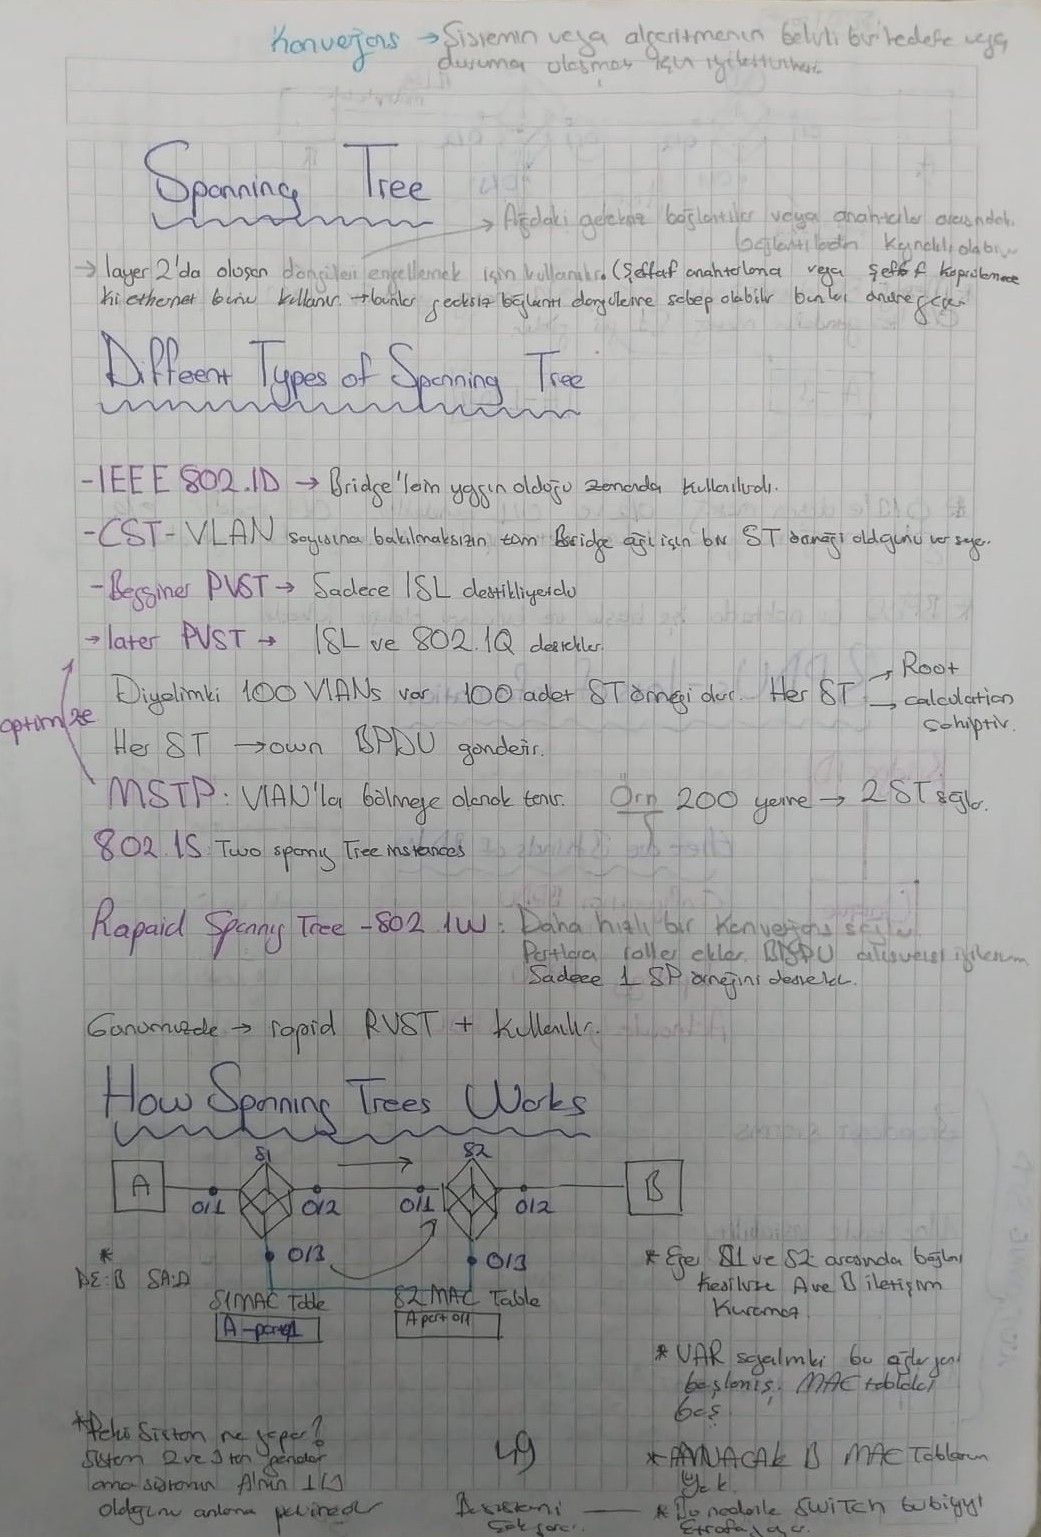 Konverjans → Sistemin veya algoritmanın belirli bir hedefe veya
duruma ulaşması için iyileştirilmesi.
Spanning Tree
→ Ağdaki gereksiz bağlantılar veya anahtarlar arasındaki
bağlantılardan kaynaklı olabilir
→ layer 2'da oluşan döngüleri engellemek için kullanılır. (Şeffaf anahtarlama veya şeffaf köprüleme
ki ethernet bunu kullanır → bunlar gereksiz bağlantı döngülerine sebep olabilir bunları
Diffeent Types of Spanning Tree
-IEEE 802.1D → Bridge'lerin yaygın olduğu zamanda kullanılırdı.
-CST- VLAN sayısına bakılmaksızın tüm Bridge ağı için bir ST örneği olduğunu var sayar.
- PVST → Sadece ISL destikliyordu
→ later PVST → ISL ve 802.1Q destekler.
Diyelimki 100 VlANs var 100 adet ST örneği olur. Her ST → Root
→ calculation
sahiptir.
optimize
Her ST → own BPDU gönderir.
MSTP: VlAN'la bölmeye olanak tanır. Örn 200 yerine → 2 ST sağlar.
802.1S: Two spanng Tree instances
Rapaid Spanng Tree -802.1W: Daha hızlı bir Konverjans sağlar
Portlara roller ekler. BPDU alışverişi
Sadece 1 SP örneğini destekler.
Günümüzde → rapid RVST + Kullanılır.
How Spanning Trees Works
S1 S2
A 0/1 0/2 0/1 0/2 B
0/3 0/3
*
DE:B SA:A
S1 MAC Table S2 MAC Table
A - A port 0/1
* Eğer S1 ve S2 arasında bağlantı
kesilirse A ve B iletişim
Kuramaz.
* VAR sayalımki bu ağlar yeni
başlamış. MAC tabloları
boş.
* Peki Sistem ne yapar?
Sistem 2 ve 3 ten gönderir
ama sistemin A'nın
olduğunu anlama
49
* B MAC Tablosunda
Yok.
* Bu nedenle SWITCH bu bilgiyi